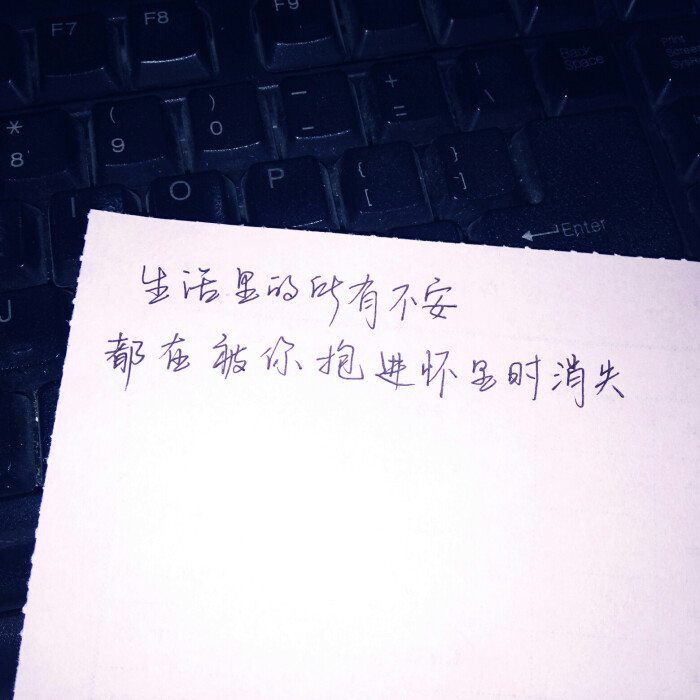 F7 F8 F9
* 8 ( 9 ) 0 — - + = | \ Back space
I O P { [ } ] Enter
J
生活里的所有不安
都在被你抱进怀里时消失